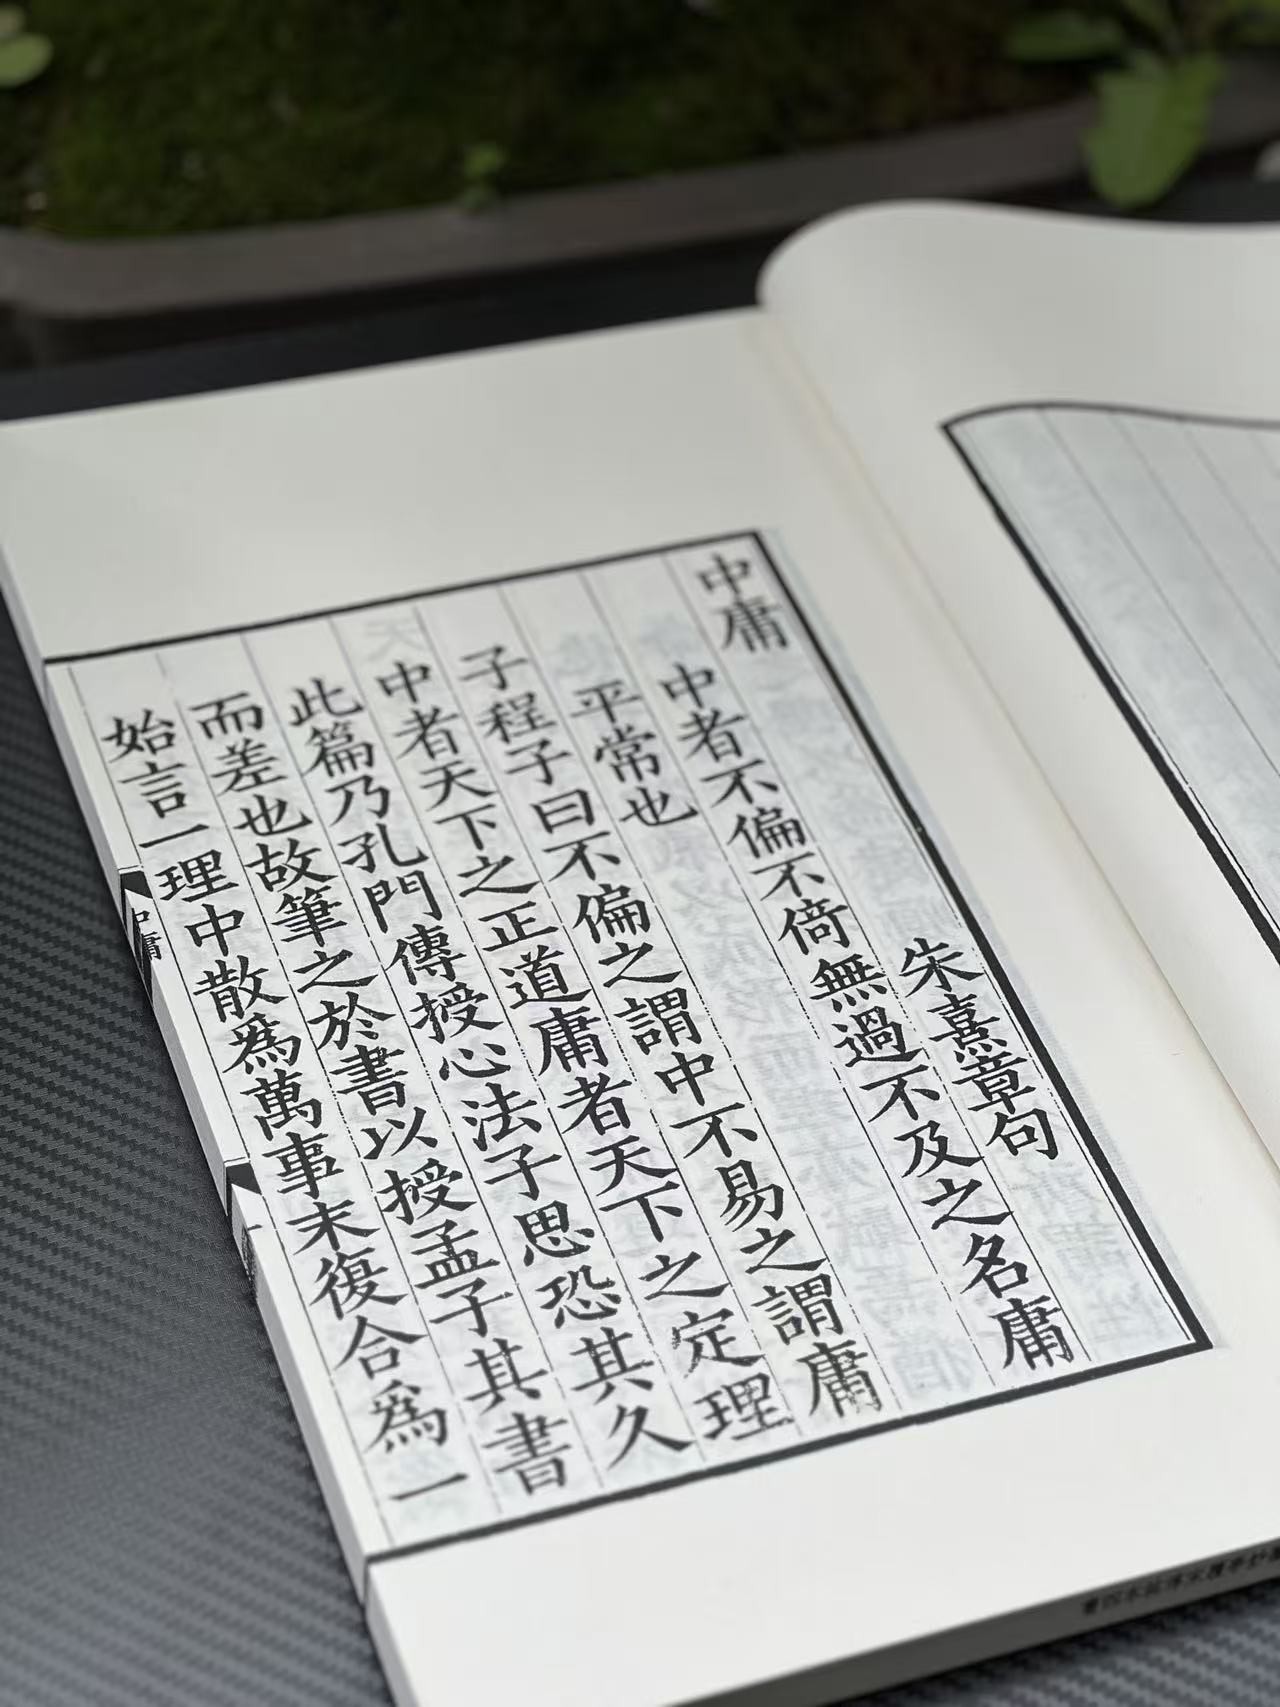 中庸
朱熹章句
中者不偏不倚無過不及之名庸
平常也
子程子曰不偏之謂中不易之謂庸
中者天下之正道庸者天下之定理
此篇乃孔門傳授心法子思恐其久
而差也故筆之於書以授孟子其書
始言一理中散為萬事末復合為一
中庸